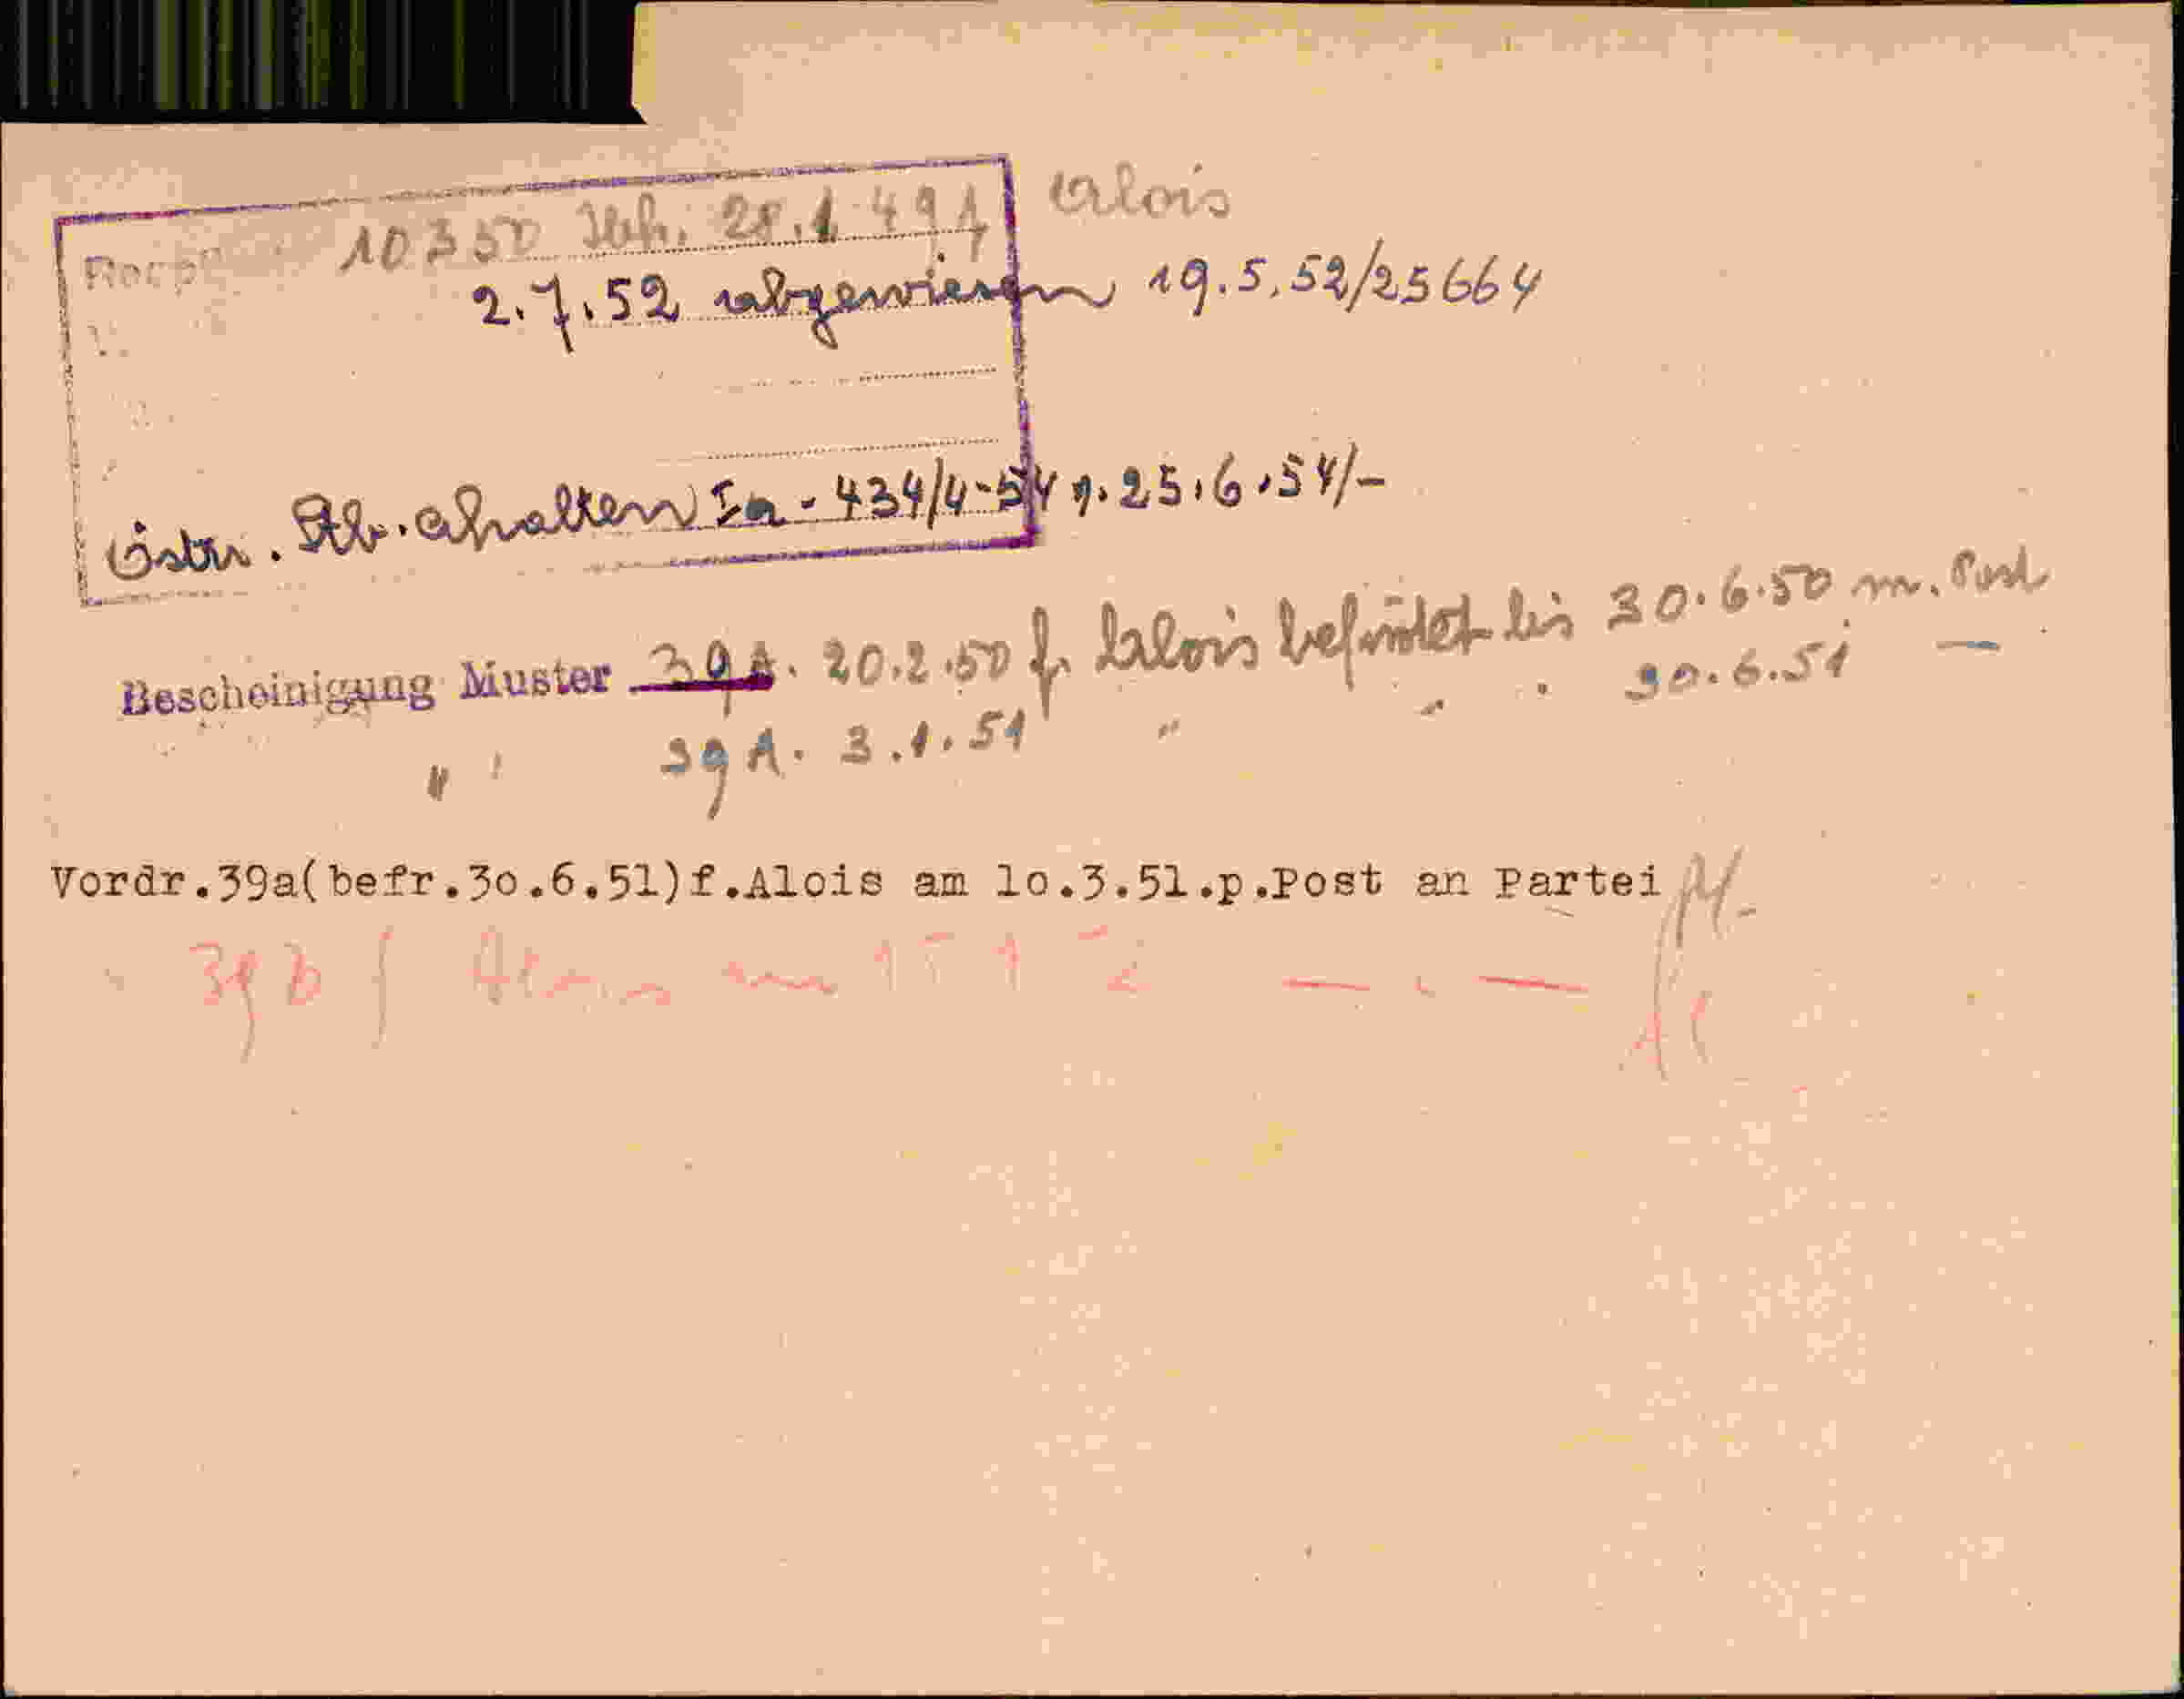 10350 28.1.49 Alois
2.7.52 abgewiesen 19.5.52/25664
Östr. Stb. erhalten Ia - 434/4-54 v. 25.6.54/-
Bescheinigung Muster 39A. 20.2.50 f. Alois befristet bis 30.6.50 m. Post
" " 39A. 3.1.51 " " " 30.6.51 —
Vordr.39a(befr.3o.6.51)f.Alois am lo.3.51.p.Post an Partei
" 39b f Alois am — " —